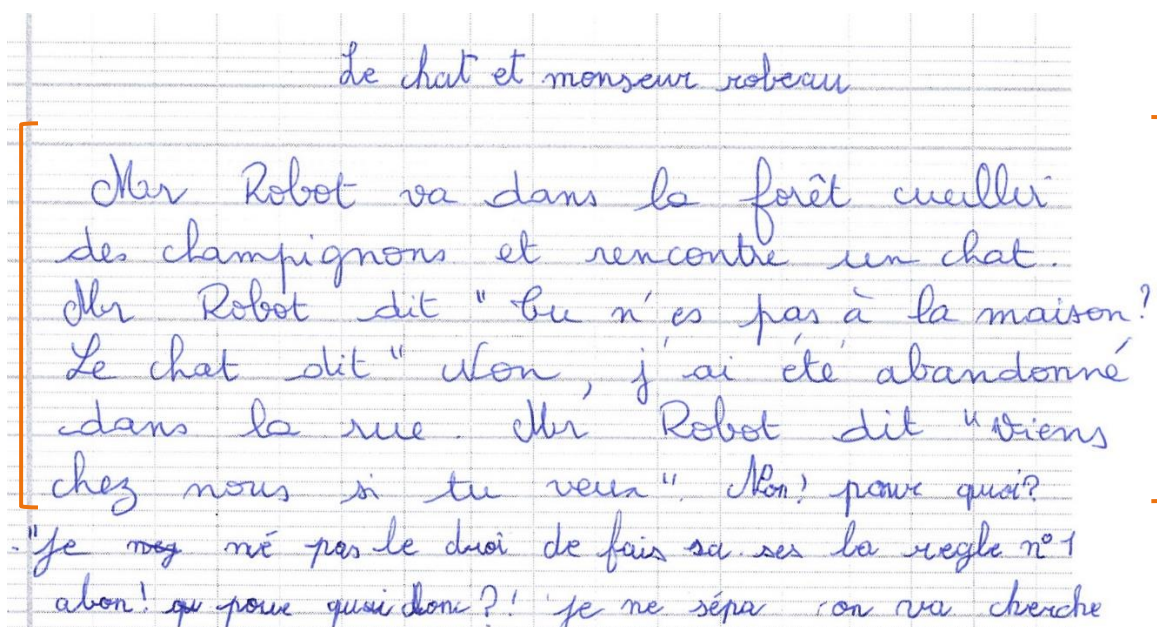 Le chat et monseur robeau
Mr Robot va dans la forêt cueillir
des champignons et rencontre un chat.
Mr Robot dit " tu n'es pas à la maison?
Le chat dit " Non, j'ai été abandonné
dans la rue. Mr Robot dit " viens
chez nous si tu veux". Non! pour quoi?
"Je né pas le droi de fais sa ses la regle n°1
abon! pour quoi donc?! je ne sépa on va cherche